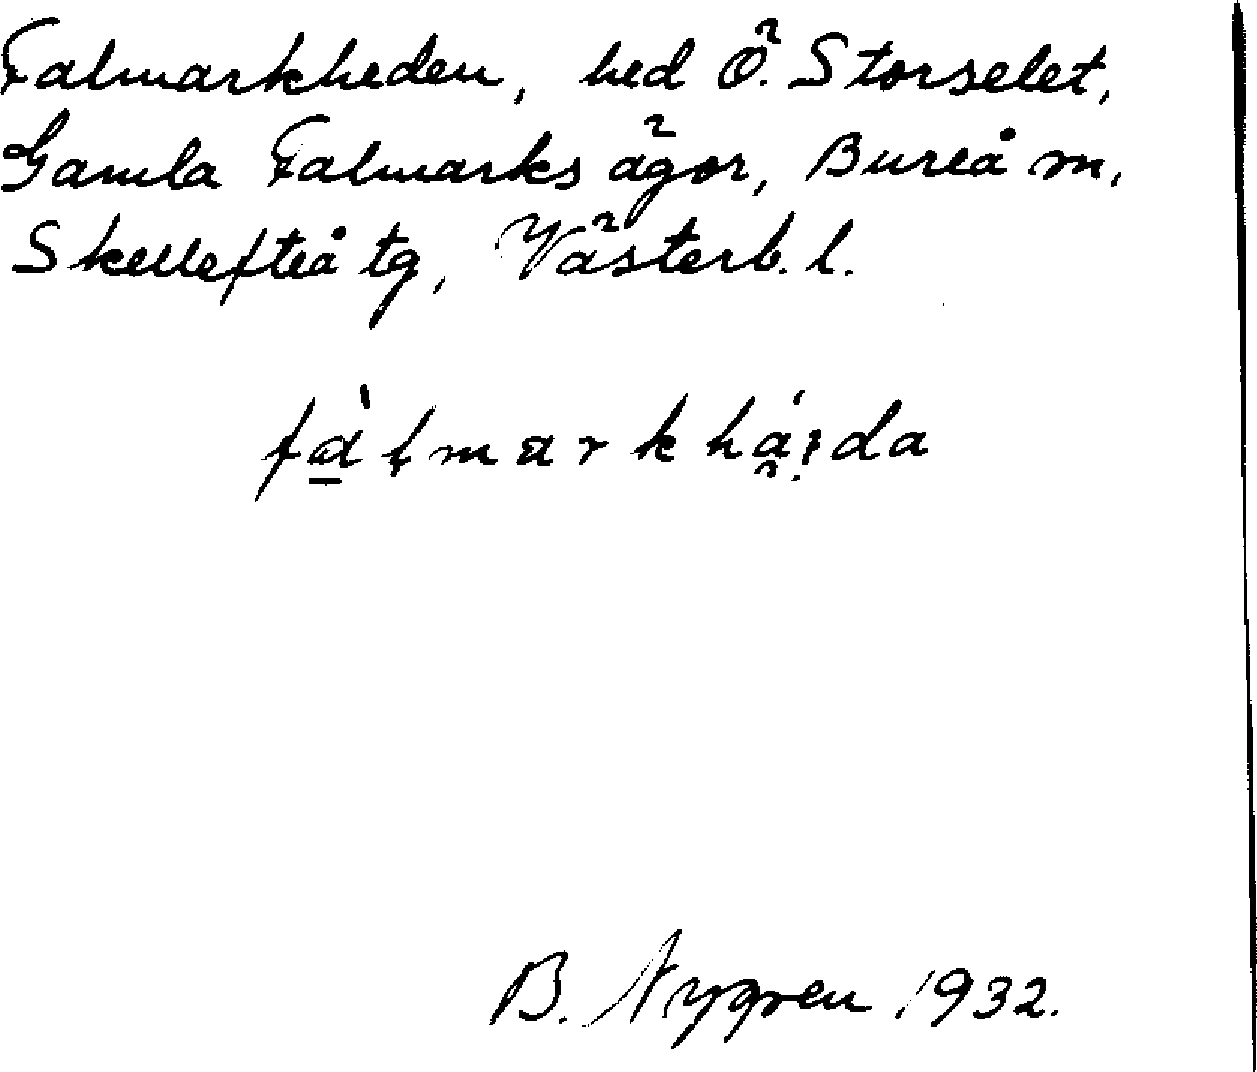 Falmarkheden, hed Ö. Storselet,
Gamla Falmarks ägor, Bureå m,
Skellefteå tg, Västerb. l.
B. Nygren 1932.